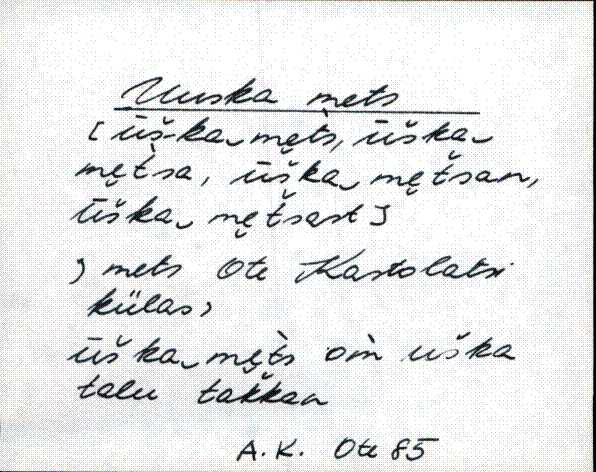 Uuska mets
[ūš-ka‿mę̀t́s, ūška‿
mę̆t́sa, ūš̆ka‿ mę̆t́san,
ūška‿ mę̆t́sast]
) mets Ote Kastolatsi
külas)
ūška‿mę̀t́s oǹ uška
talu tak̆kan
A.K. Ote 85